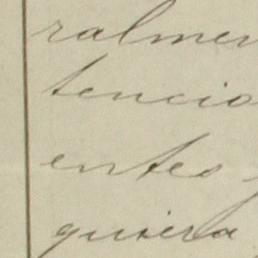 ralmen
tencio
entes y
quiera